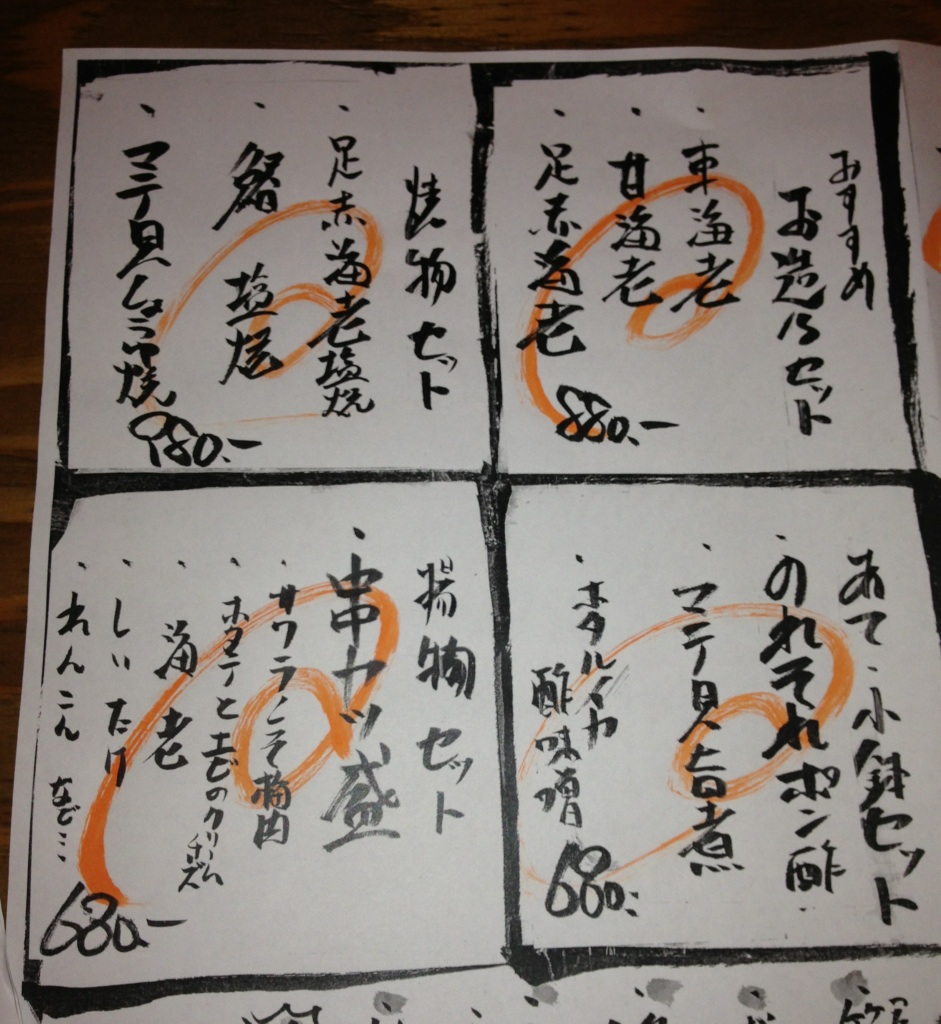 おすすめ
お造りセット
・車海老
・甘海老
・足赤海老
880.-
焼物セット
・足赤海老塩焼
・鰆 塩焼
・マテ貝しょうゆ焼
980.-
あて・小鉢セット
・のれそれポン酢
・マテ貝旨煮
・ホタルイカ
酢味噌
680.-
揚物セット
・串カツ盛
・サワラしそ梅肉
・ホタテとエビのクリームチーズ
・海老
・しいたけ
・れんこん などに
680.-